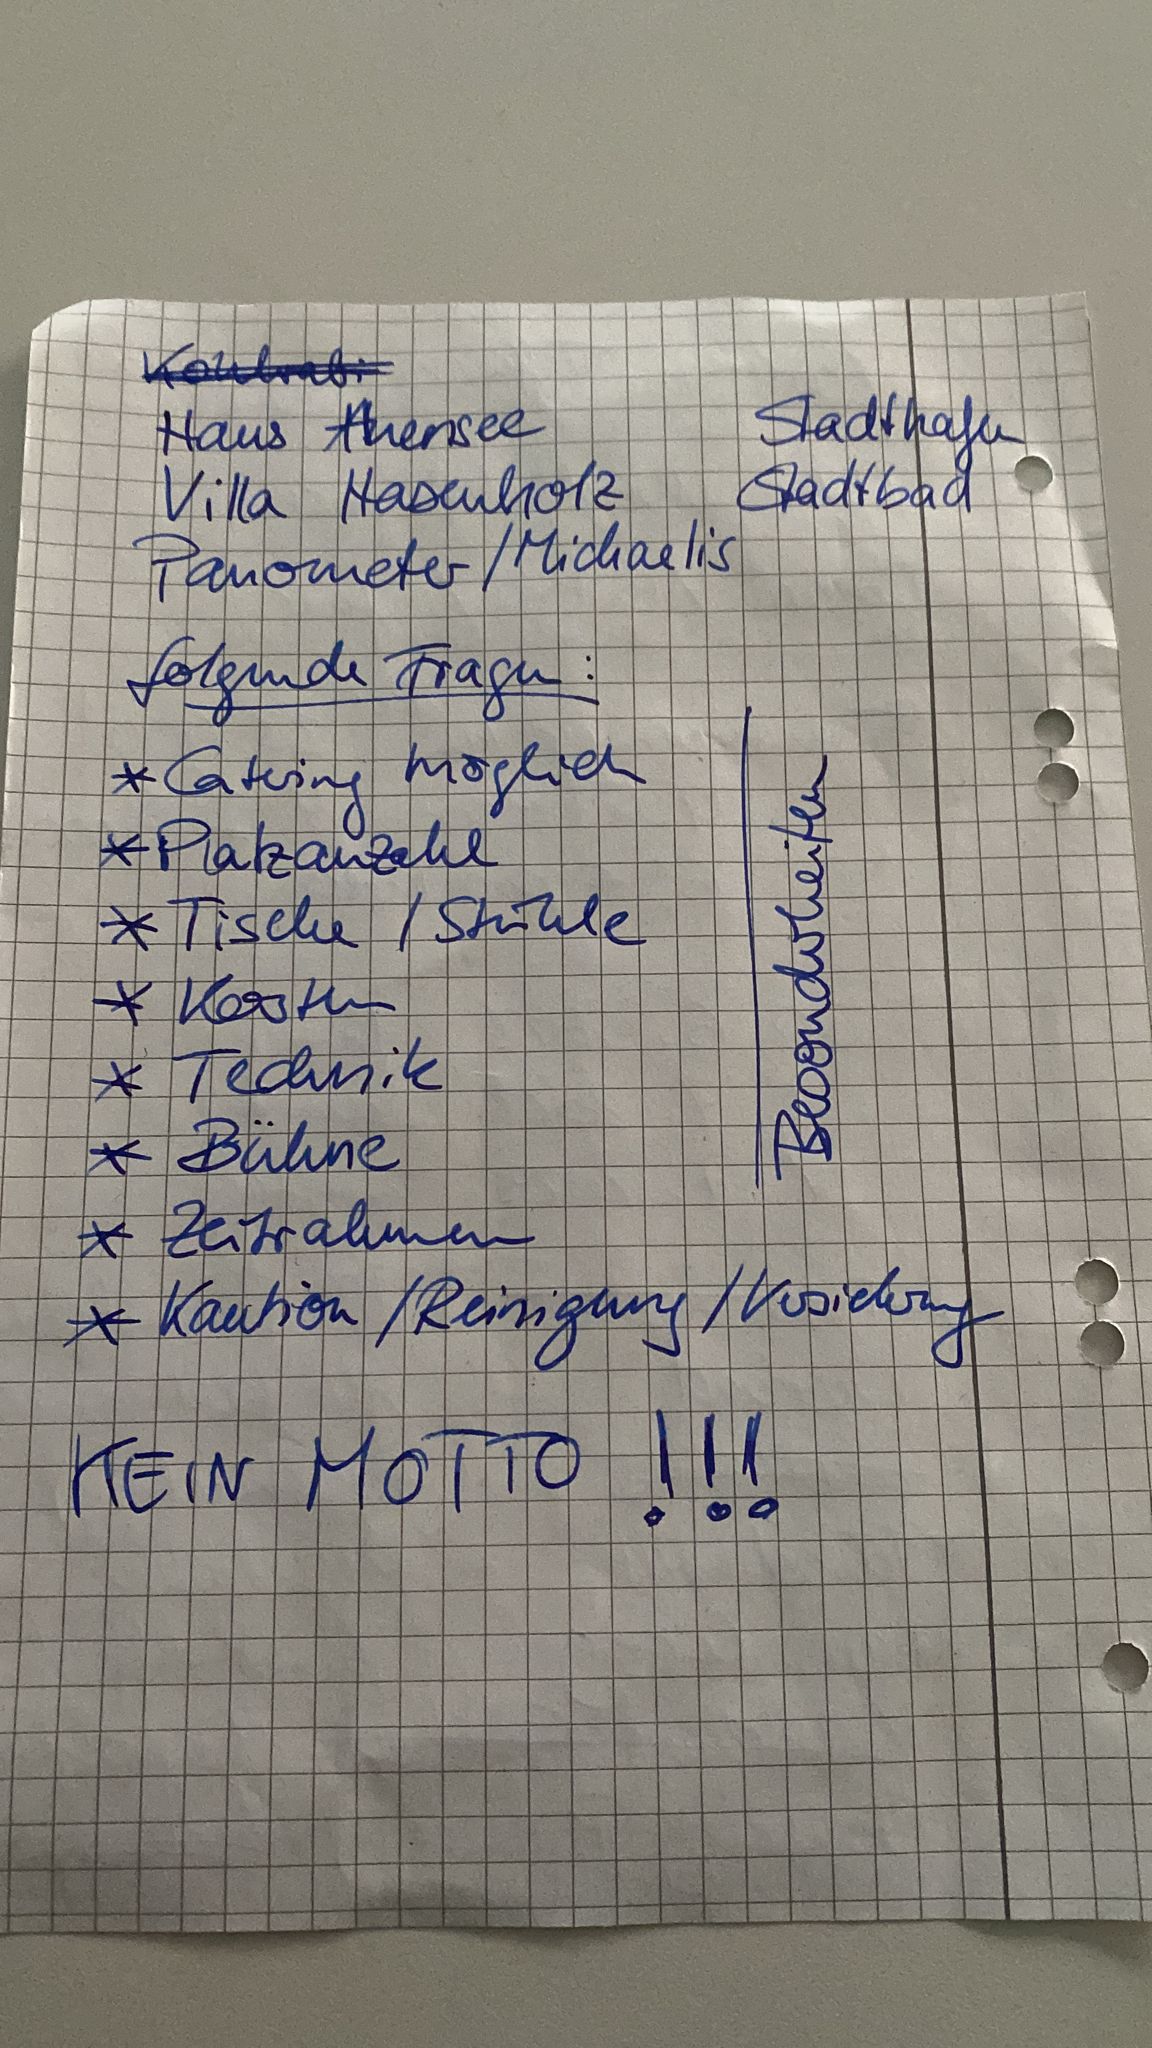 Kohlrabi
Haus Auensee Stadthafen
Villa Hasenholz Stadtbad
Panometer/Michaelis
folgende Fragen:
* Catering möglich
* Platzanzahl
* Tische / Stühle
* Kosten
* Technik
* Bühne
* Zeitrahmen
* Kaution /Reinigung /Versicherung
Besonderheiten
KEIN MOTTO !!!